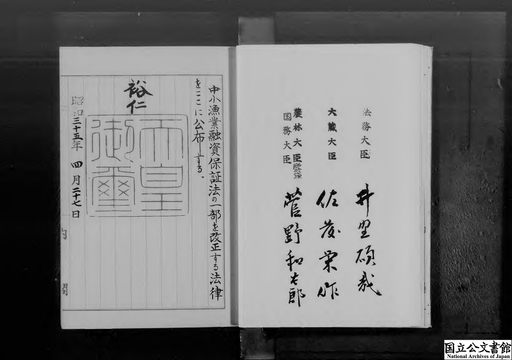 法務大臣 井野碩哉
大蔵大臣 佐藤栄作
農林大臣臨時代理
国務大臣 菅野和太郎
中小漁業融資保証法の一部を改正する法律
をここに公布する。
裕仁
天皇
御璽
昭和三十五年四月二十七日
内閣
国立公文書館
National Archives of Japan